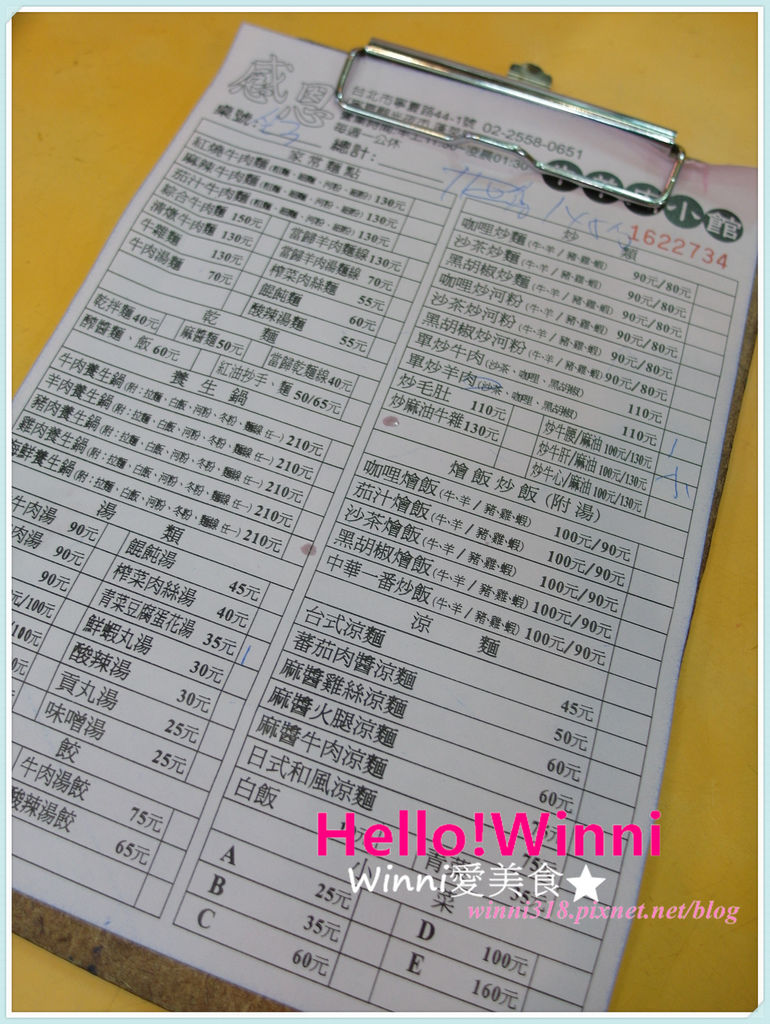 感恩
台北市寧夏路44-1號 02-2558-0651
凌晨01:30
每週一公休
桌號:
總計:
小館
1622734
家常麵點
紅燒牛肉麵(粗麵、細麵、河粉、細粉) 130元
麻辣牛肉麵(粗麵、細麵、河粉、細粉) 130元
茄汁牛肉麵(粗麵、細麵、河粉、細粉) 130元
綜合牛肉麵 150元
當歸羊肉麵線 130元
清燉牛肉麵 130元
當歸羊肉湯麵線 70元
牛雜麵 130元
榨菜肉絲麵 55元
牛肉湯麵 70元
餛飩麵 60元
酸辣湯麵 55元
乾麵
乾拌麵40元
麻醬麵50元
當歸乾麵線40元
醡醬麵、飯60元
紅油抄手、麵50/65元
養生鍋
牛肉養生鍋(附:拉麵、白飯、河粉、冬粉、麵線任一) 210元
羊肉養生鍋(附:拉麵、白飯、河粉、冬粉、麵線任一) 210元
豬肉養生鍋(附:拉麵、白飯、河粉、冬粉、麵線任一) 210元
雞肉養生鍋(附:拉麵、白飯、河粉、冬粉、麵線任一) 210元
海鮮養生鍋(附:拉麵、白飯、河粉、冬粉、麵線任一) 210元
湯類
牛肉湯 90元
餛飩湯 45元
肉湯 90元
榨菜肉絲湯 40元
90元
青菜豆腐蛋花湯 35元
元/100元
鮮蝦丸湯 30元
/100元
酸辣湯 30元
貢丸湯 25元
味噌湯 25元
餃
牛肉湯餃 75元
酸辣湯餃 65元
炒類
咖哩炒麵(牛、羊/豬、雞、蝦) 90元/80元
沙茶炒麵(牛、羊/豬、雞、蝦) 90元/80元
黑胡椒炒麵(牛、羊/豬、雞、蝦) 90元/80元
咖哩炒河粉(牛、羊/豬、雞、蝦) 90元/80元
沙茶炒河粉(牛、羊/豬、雞、蝦) 90元/80元
黑胡椒炒河粉(牛、羊/豬、雞、蝦) 90元/80元
單炒牛肉(沙茶、咖哩、黑胡椒) 110元
單炒羊肉(沙茶、咖哩、黑胡椒) 110元
炒毛肚 110元
炒牛腰/麻油 100元/130元
炒麻油牛雜130元
炒牛肝/麻油 100元/130元
炒牛心/麻油 100元/130元
燴飯炒飯(附湯)
咖哩燴飯(牛、羊/豬、雞、蝦) 100元/90元
茄汁燴飯(牛、羊/豬、雞、蝦) 100元/90元
沙茶燴飯(牛、羊/豬、雞、蝦) 100元/90元
黑胡椒燴飯(牛、羊/豬、雞、蝦) 100元/90元
中華一番炒飯(牛、羊/豬、雞、蝦) 100元/90元
涼麵
台式涼麵 45元
蕃茄肉醬涼麵 50元
麻醬雞絲涼麵 60元
麻醬火腿涼麵 60元
麻醬牛肉涼麵
日式和風涼麵 75元
白飯
小菜
A 25元
B 35元
C 60元
D 100元
E 160元
Hello!Winni
Winni愛美食★
winni318.pixnet.net/blog